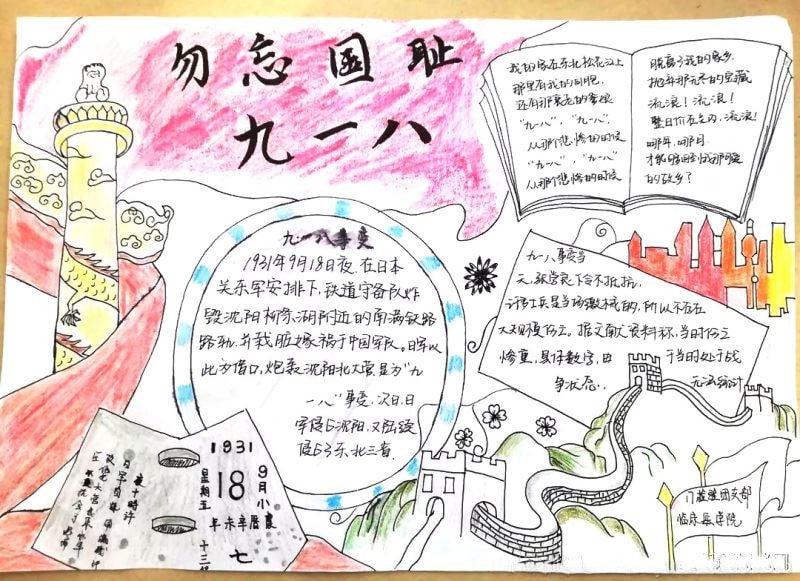 勿忘国耻
九一八
我的家在东北松花江上
那里有我的同胞
还有那衰老的爹娘
"九一八", "九一八",
从那个悲惨的时候
"九一八", "九一八"
从那个悲惨的时候
脱离了我的家乡
抛弃那无尽的宝藏
流浪!流浪!
整日价在关内,流浪!
哪年,哪月
才能够回到我那可爱
的故乡?
九一八事变
1931年9月18日夜,在日本
关东军安排下,铁道守备队炸
毁沈阳柳条湖附近的南满铁路
路轨,并栽赃嫁祸于中国军队。日军以
此为借口,炮轰沈阳北大营,是为"九
一八"事变,次日,日
军侵占沈阳,又陆续
侵占了东北三省.
九一八事变当
下令不抵抗,
许多士兵是当场缴械的,所以不存在
大规模伤亡。据文献资料称,当时伤亡
惨重,具体数字,由 于当时处于战
争状态. 无法统计
1931
18
星期五
9月小
辛未年
七
夜十時許
日軍自爆
门
临床医学院